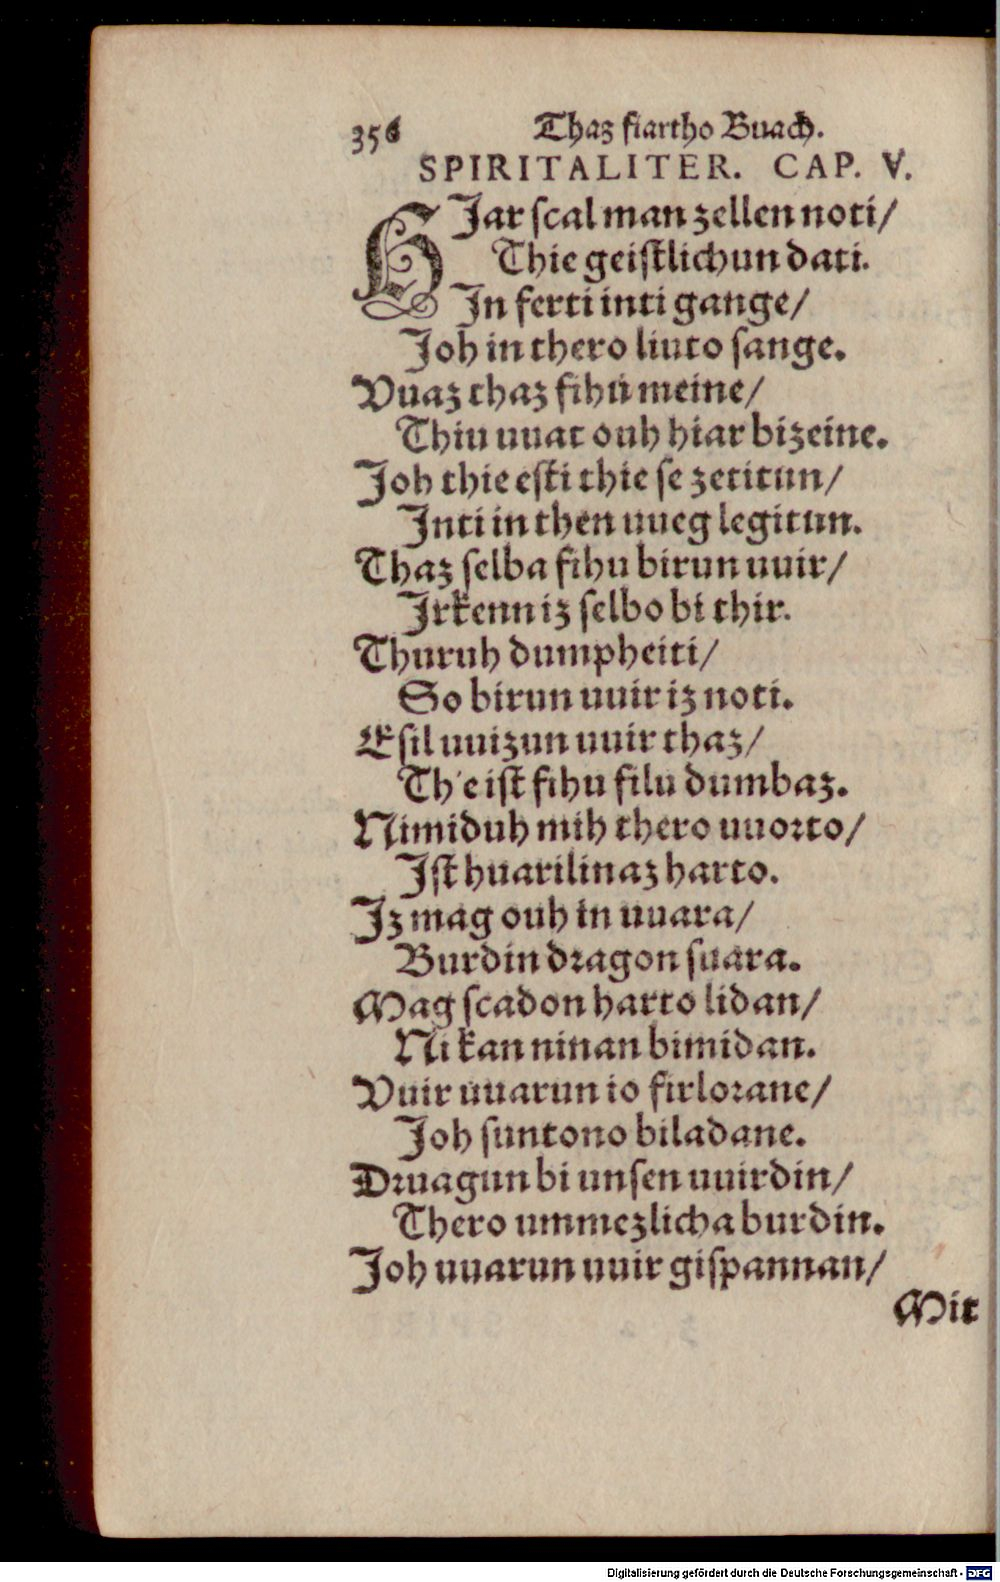 356 Thaz fiartho Buach.
SPIRITALITER. CAP. V.
HJar scal man zellen noti/
Thie geistlichun dati.
In ferti inti gange/
Joh in thero liuto sange.
Vuaz thaz fihu meine/
Thiu uuat ouh hiar bizeine.
Joh thie esti thie se zetitun/
Inti in then uueg legitun.
Thaz selba fihu birun uuir/
Irkenn iz selbo bi thir.
Thuruh dumpheiti/
So birun uuir iz noti.
Esil uuizun uuir thaz/
Th'eist fihu filu dumbaz.
Nimiduh mih thero uuorto/
Ist huarilinaz harto.
Iz mag ouh in uuara/
Burdin dragon suara.
Mag scadon harto lidan/
Ni kan ninan bimidan.
Vuir uuarun io firlorane/
Joh suntono biladane.
Druagun bi unsen uuirdin/
Thero ummezlicha burdin.
Joh uuarun uuir gispannan/
Mit
Digitalisierung gefördert durch die Deutsche Forschungsgemeinschaft - DFG